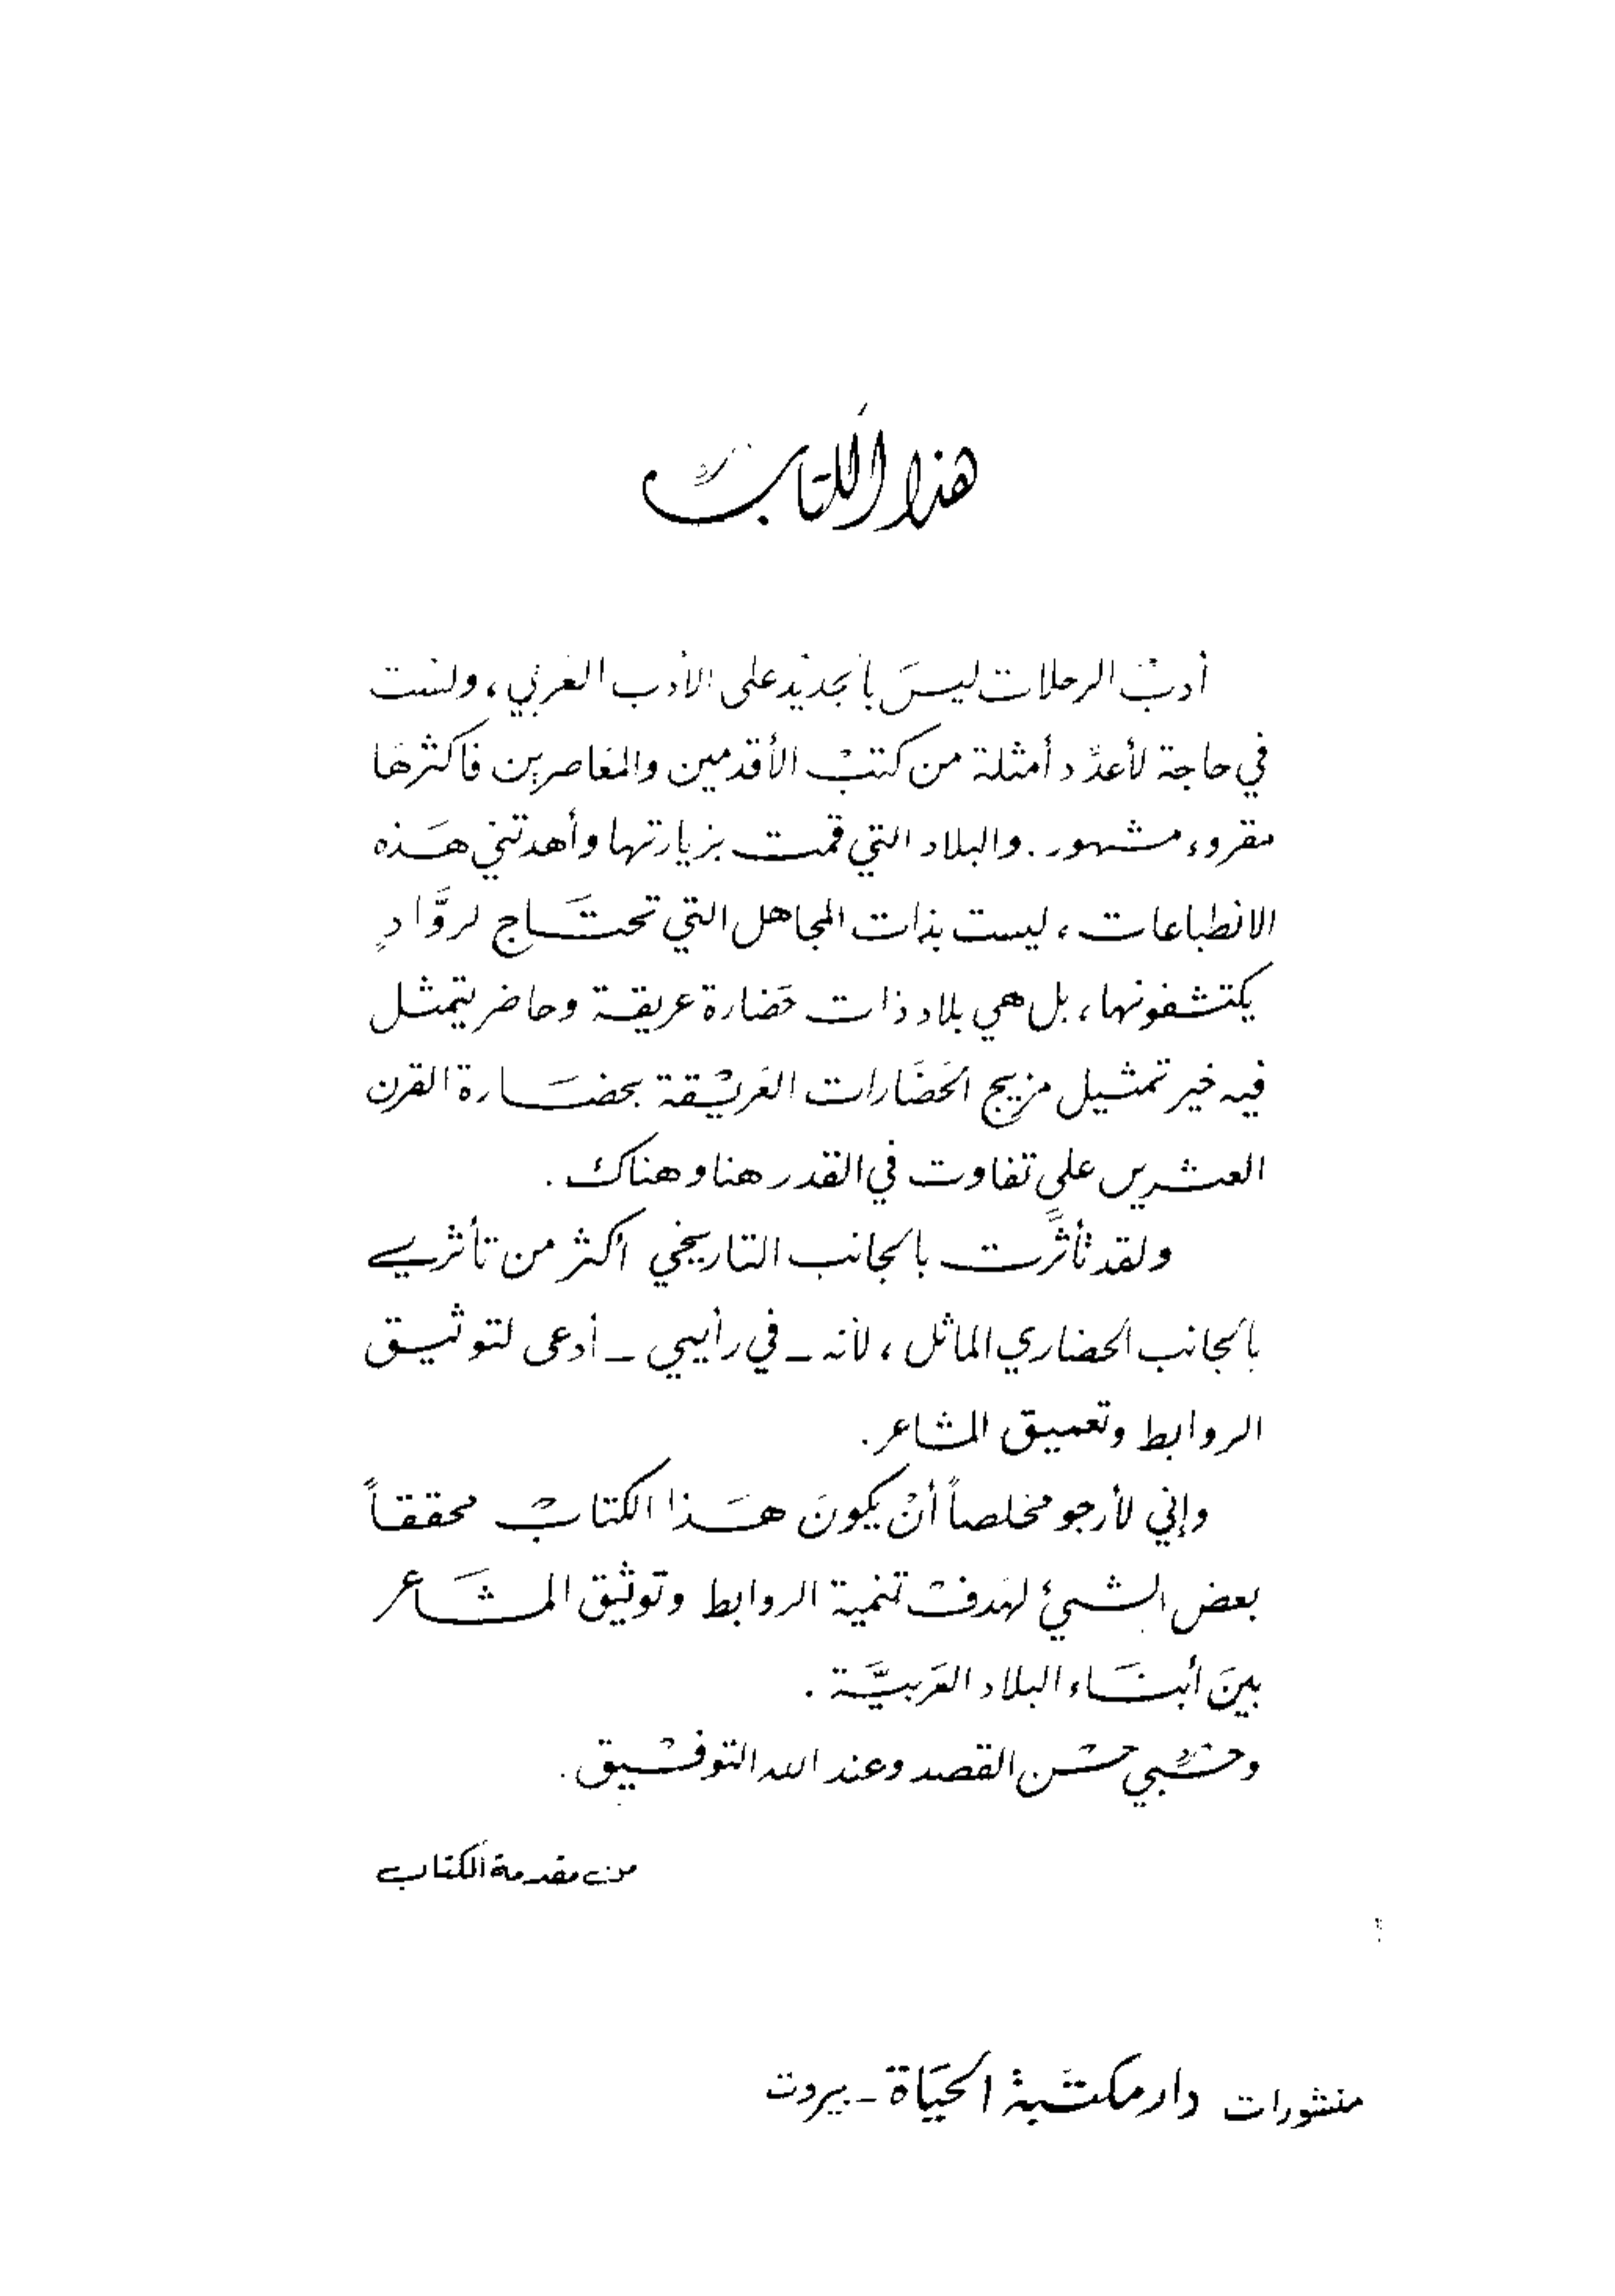 هذا الكتاب
أدب الرحلات ليسَ بالجديد على الأدب العربي، ولست
في حاجة لأعدِّد أمثلة من كتب الأقدمين والمعاصرين فأكثرها
مقروء مشهور. والبلاد التي قمت بزيارتها وأهدتني هَذه
الانطباعات، ليست بذات المجاهل التي تحتَاج لروَّادٍ
يكتشفونها، بل هي بلاد ذات حَضارة عريقة وحاضر يتمثل
فيه خير تمثيل مزيج الحَضَارات العَريقة بحضَارة القرن
العشرين على تفاوت في القدر هنا وهناك.
ولقد تأثَّرت بالجانب التاريخي أكثر من تأثري
بالجانب الحضاري الماثل، لأنه - في رأيي - أدعى لتوثيق
الروابط وتعميق المشاعر.
وإني لأرجو مخلصاً أنْ يكونَ هَذا الكتابْ محققاً
بعض الشيئ لهَدفْ تنمية الروابط وتوثيق المشَاعر
بينَ أبنَاء البلاد العَربيَّة.
وحسْبي حسْن القصد وعند الله التوفيق.
من مقدمة الكتاب
منشورات دار مكتَبة الحيَاة - بيروت